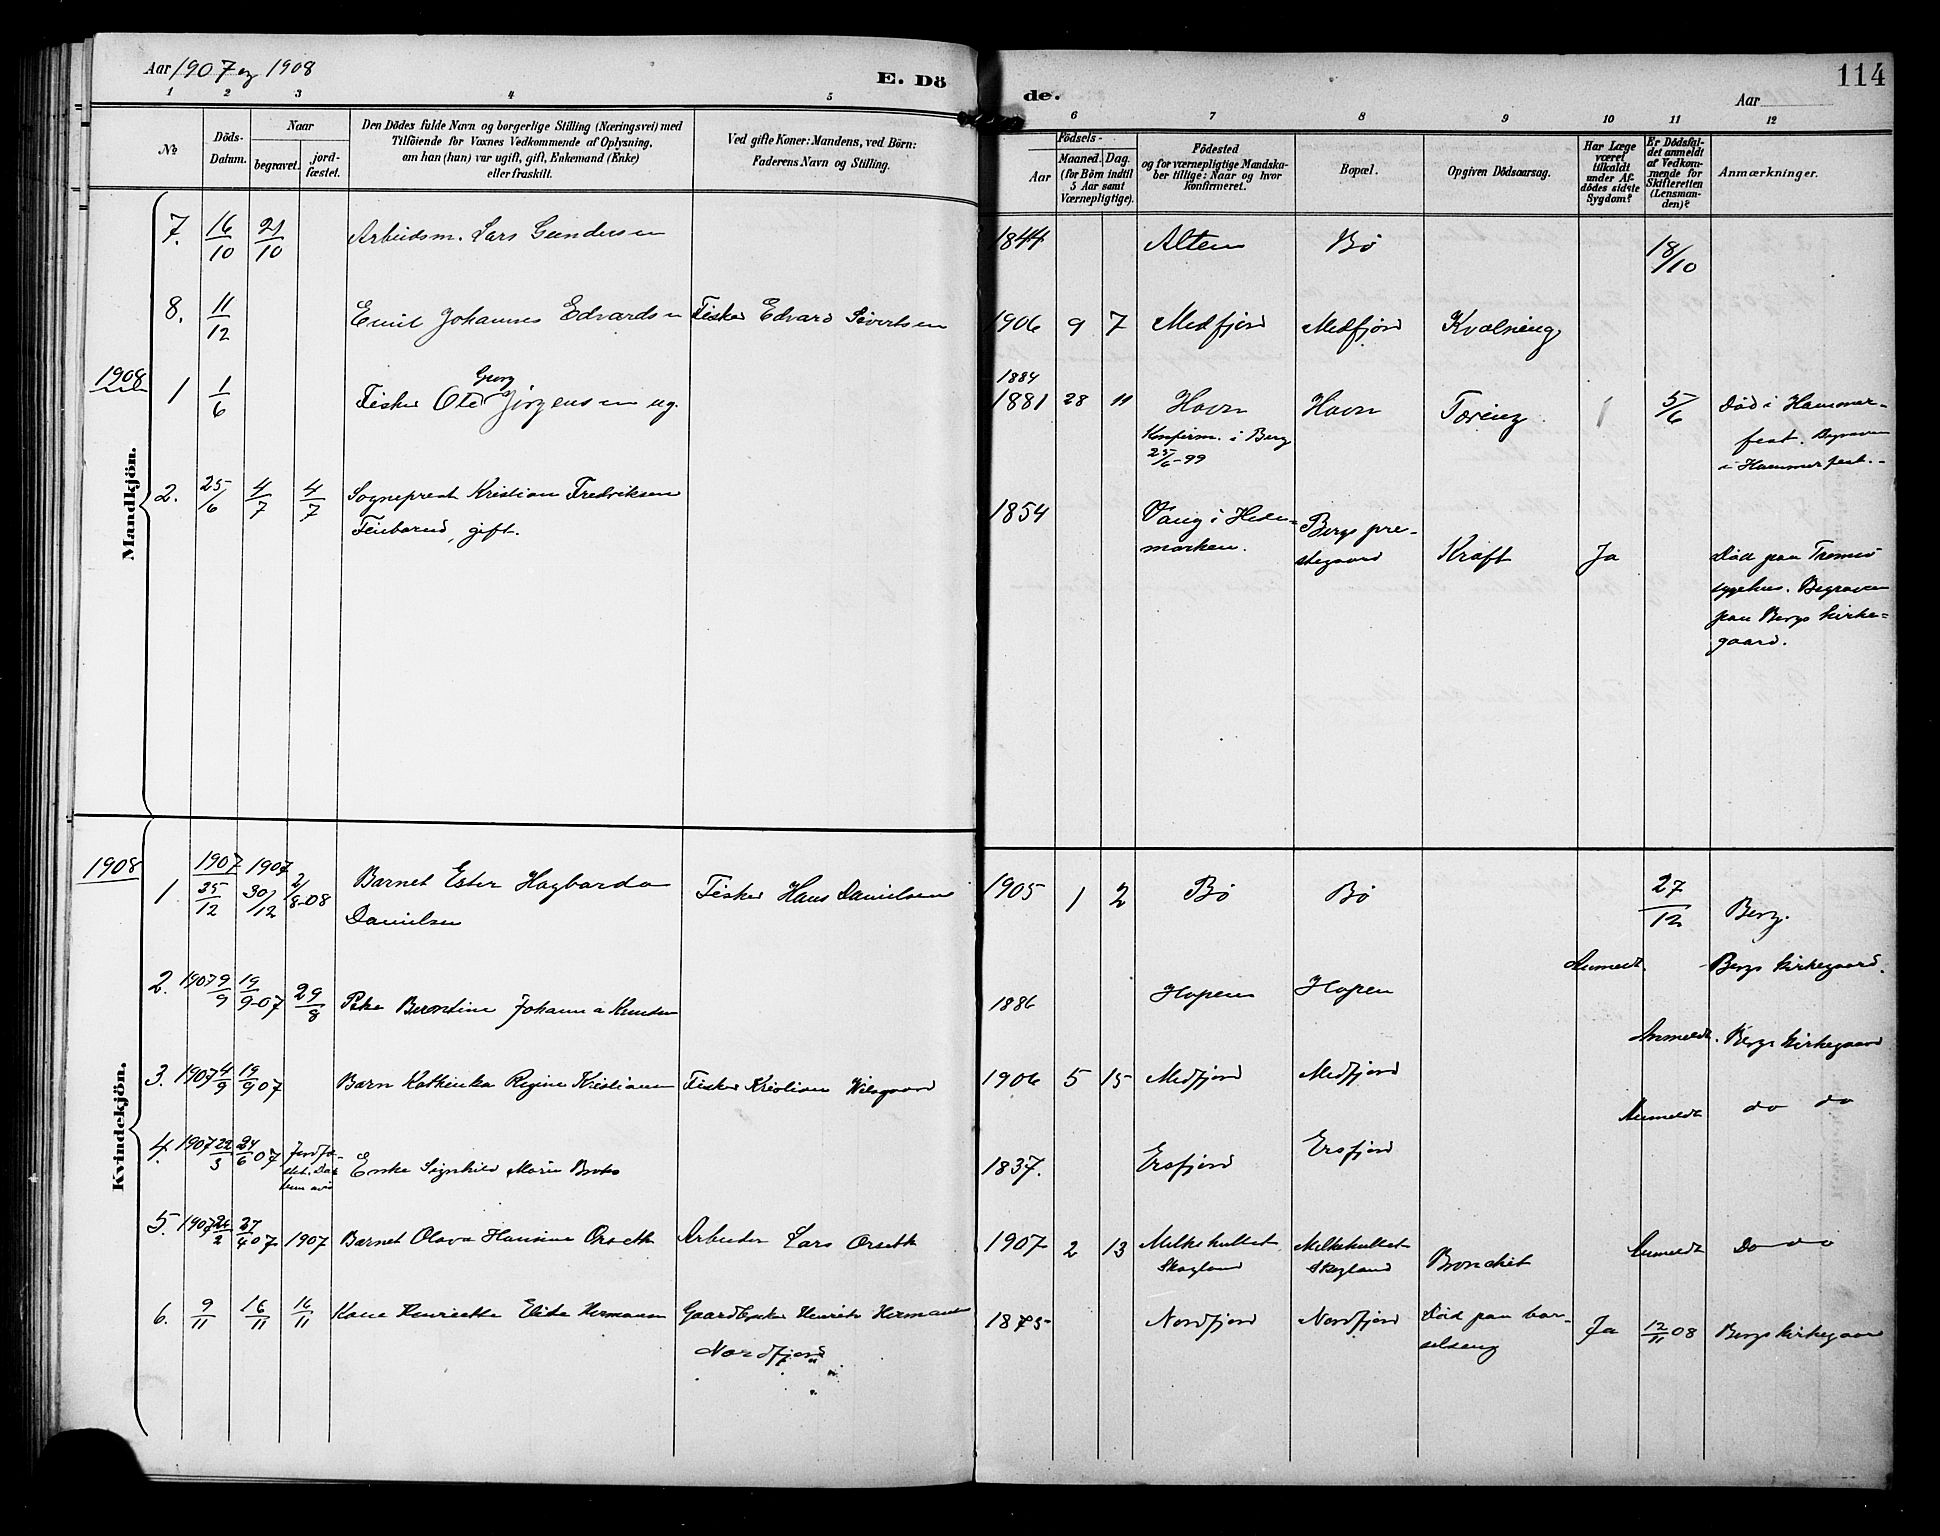 Aar 1907 og 1908
E. Dö
de.
Aar
114
1 2 3 4 5 6 7 8 9 10 11 12
No.
Döds-
Datum.
Naar
begravet.
jord-
fæstet.
Den Dödes fulde Navn og borgerlige Stilling (Næringsvei) med
Tilföiende for Voxnes Vedkommende af Oplysning,
om han (hun) var ugift, gift, Enkemand (Enke)
eller fraskilt.
Ved gifte Koner: Mandens, ved Börn:
Faderens Navn og Stilling.
Födsels-
Aar
Maaned. Dag.
(for Börn indtil
5 Aar samt
Værnepligtige).
Födested
og for værnepligtige Mandska-
ber tillige: Naar og hvor
konfirmeret.
Bopæl.
Opgiven Dödsaarsag.
Har Læge
været
tilkaldt
under Af-
dödes sidste
Sygdom?
Er Dödsfal-
det anmeldt
af Vedkom-
mende for
Skifteretten
(Lensman-
den)?
Anmærkninger.
Mandkjön.
7. 16/10 21/10 Arbeidsm. Lars Gundersen 1844 Alten Bö 18/10
8. 11/12 Emil Johannes Edvardsen Fisker Edvard Sivertsen 1906 9 7 Medfjord Medfjord Kvælning
1908
Georg
1884
1 1/6 Fisker Ole Jörgensen ug. 1881 28 11 Havn Havn Tæring 1 5/6 Död i Hammer-
Konfirm. i Berg
fest. Begraven
25/6-99
i Hammerfest.
2. 25/6 4/7 4/7 Sogneprest Kristian Fredriksen 1854 Vang i Hede- Bergs pre-
gift.
marken. stegaard Kræft Ja Död paa Tromsö
sygehus. Begraven
paa Bergs kirke-
gaard.
Kvindekjön.
1908
1907 1907
1 25/12 30/12 2/8-08 Barnet Ester Hagbarda Fisker Hans Danielsen 1905 1 2 Bö Bö 27/12 Berg.
Danielsen
2. 1907 9/9 19/9-07 29/8 Pike Berontine Johanna 1886 Hopen Hopen Anmeldt. Bergs kirkegaard.
3. 1907 4/9 19/9 07 Barn Kathinka Regine Kristiansen Fisker Kristian 1906 5 15 Medfjord Medfjord Anmeldt. Bergs kirkegaard
4. 1907 22/3 24/6 07 Enke Marie 1837. Ersfjord Ersfjord Anmeldt do do
5. 1907 27/4 07 1907 Barnet Olava Hansine Orseth Arbeider Lars Orseth 1907 2 13 Bronchit Anmeldt Do do
Skogland Skogland
6. 9/11 16/11 16/11 Kone Henriette Hermansen Henrik Hermansen 1875 Nordfjord Nordfjord Död paa bar- Ja 12/11 08 Bergs kirkegaard
Nordfjord
selseng